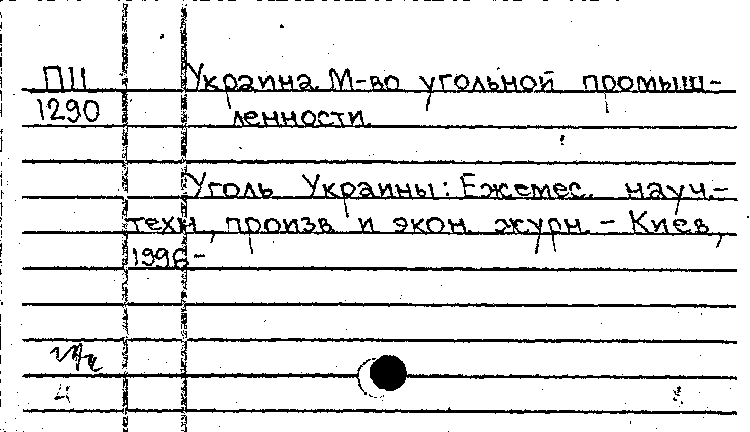 П11 Украина. М-во угольной промыш-
1290 ленности.
Уголь Украины: Ежемес. науч.-
техн., произв. и экон. журн. – Киев,
1996-